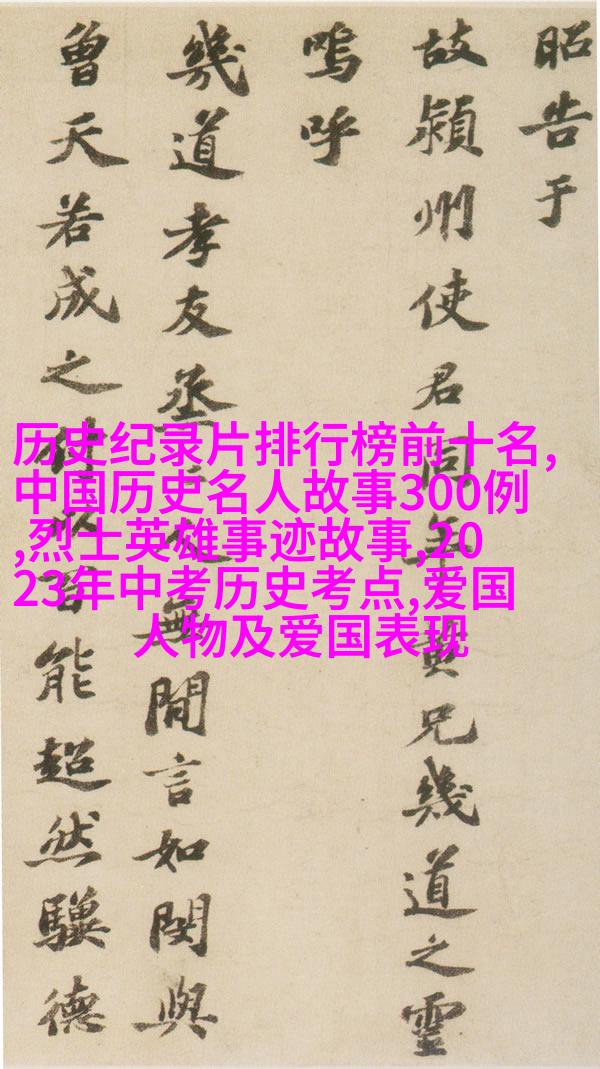 昭告于
故潁州使君同年黃兄幾道之靈
嗚呼
幾道孝友烝無閒言如閔與
曾天若成之能超然驥德
历史纪录片排行榜前十名,
中国历史名人故事300例
,烈士英雄事迹故事,20
23年中考历史考点,爱国
人物及爱国表现